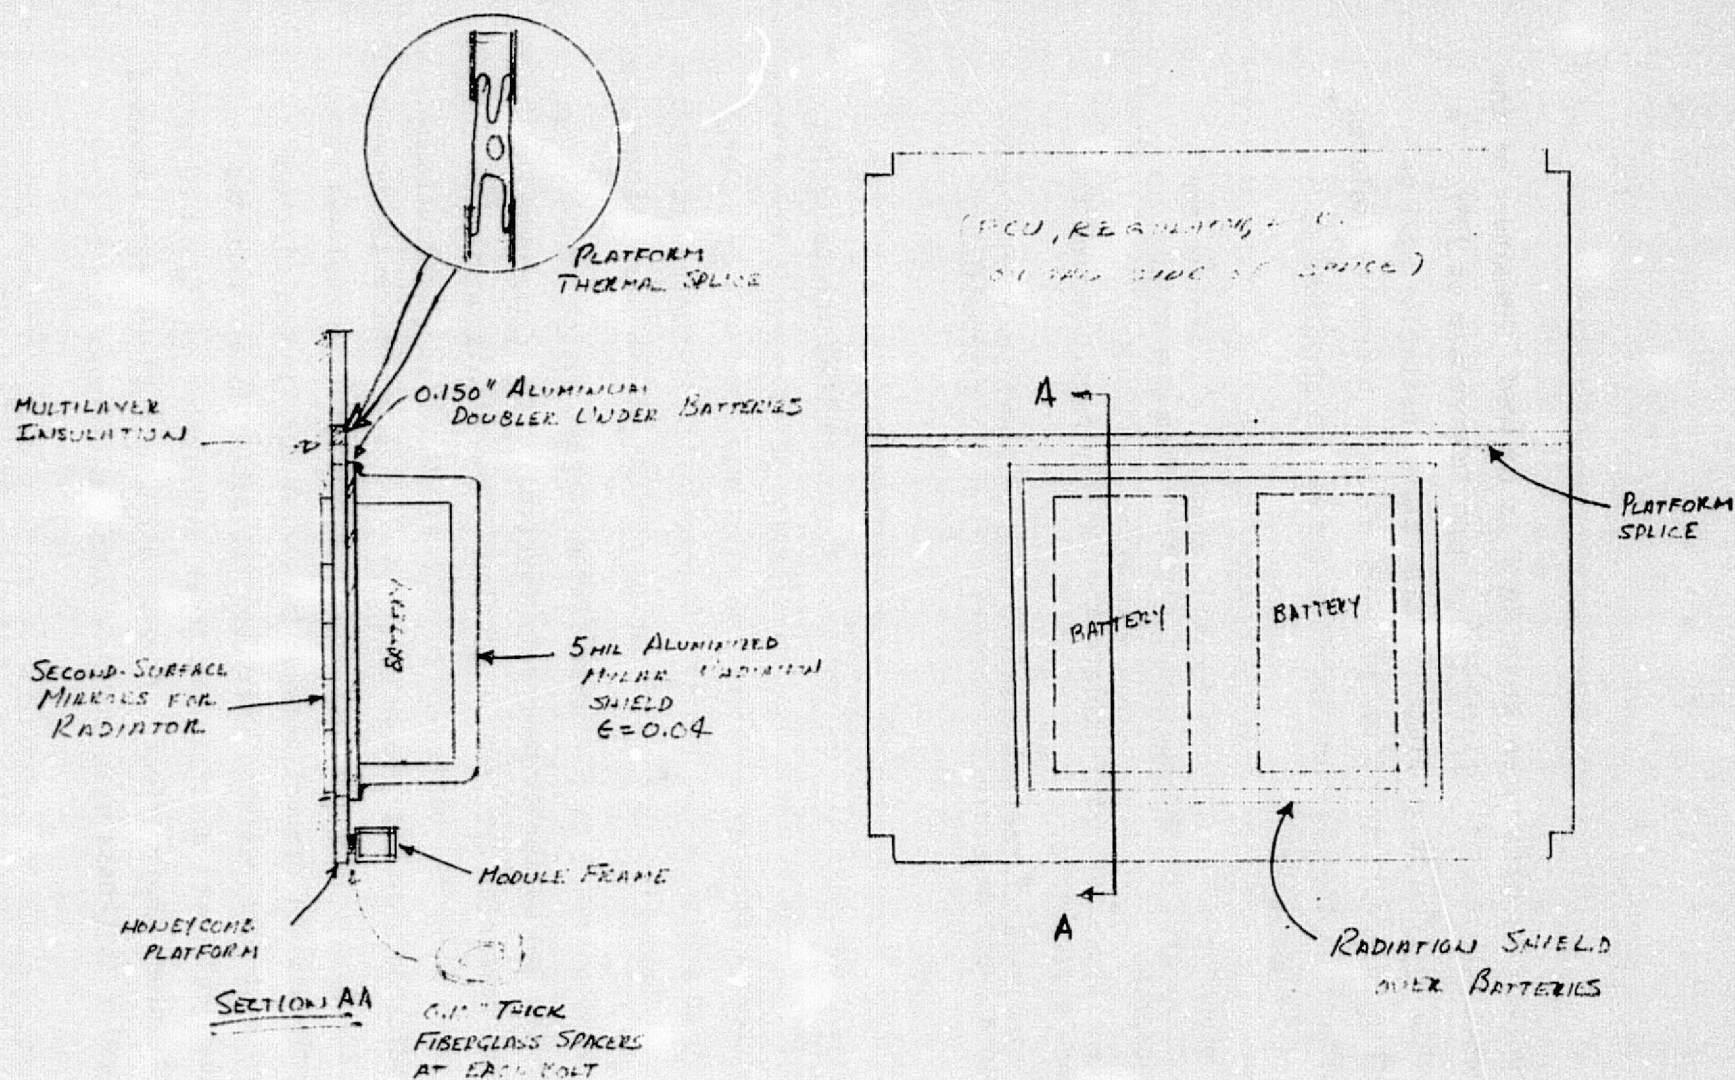 PLATFORM
THERMAL SPLICE
MULTILAYER
INSULATION
0.150" ALUMINUM
DOUBLER UNDER BATTERIES
BATTERY
SECOND-SURFACE
MIRRORS FOR
RADIATOR
5 MIL ALUMINIZED
MYLAR RADIATION
SHIELD
ϵ=0.04
MODULE FRAME
HONEYCOMB
PLATFORM
SECTION AA
THICK
FIBERGLASS SPACERS
AT EACH BOLT
(PCU, REGULATORS,
ON THIS SIDE OF SPLICE)
A
PLATFORM
SPLICE
BATTERY
BATTERY
A
RADIATION SHIELD
OVER BATTERIES